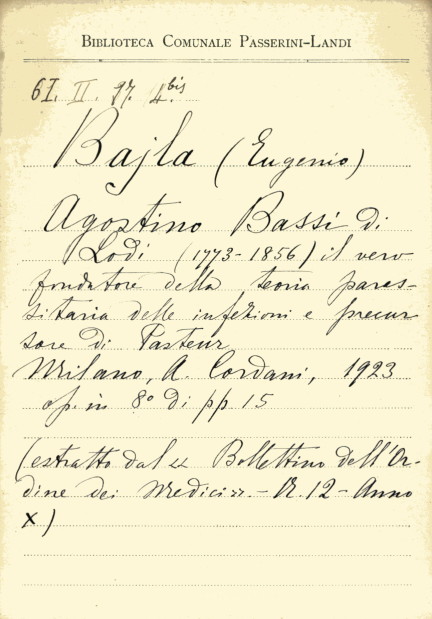 BIBLIOTECA COMUNALE PASSERINI-LANDI
6I. II. 97. 4.bis
Bajla (Eugenio)
Agostino Bassi di
Lodi (1773-1856) il vero
fondatore della teoria paras-
sitaria delle infezioni e precur
sore di Pasteur
Milano, A. Cordani, 1923
op. in 8° di pp 15
(estratto dal « Bollettino dell'Or-
dine dei Medici». - N. 12 - Anno
X)